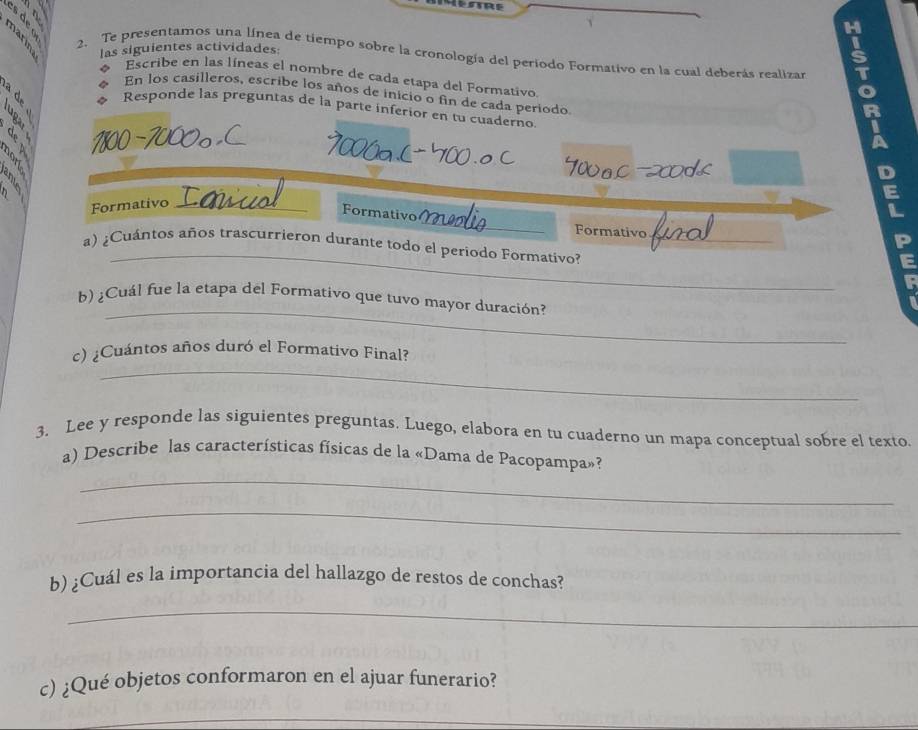 2. Te presentamos una línea de tiempo sobre la cronología del periodo Formativo en la cual deberás realizar
las siguientes actividades:
❖ Escribe en las líneas el nombre de cada etapa del Formativo.
❖ En los casilleros, escribe los años de inicio o fin de cada periodo.
❖ Responde las preguntas de la parte inferior en tu cuaderno.
7000a.C-400.aC
400aC-200dc
Formativo Inicial
Formativo medio
Formativo final
a) ¿Cuántos años trascurrieron durante todo el periodo Formativo?
b) ¿Cuál fue la etapa del Formativo que tuvo mayor duración?
c) ¿Cuántos años duró el Formativo Final?
3. Lee y responde las siguientes preguntas. Luego, elabora en tu cuaderno un mapa conceptual sobre el texto.
a) Describe las características físicas de la «Dama de Pacopampa»?
b) ¿Cuál es la importancia del hallazgo de restos de conchas?
c) ¿Qué objetos conformaron en el ajuar funerario?
HISTORIA DEL PER